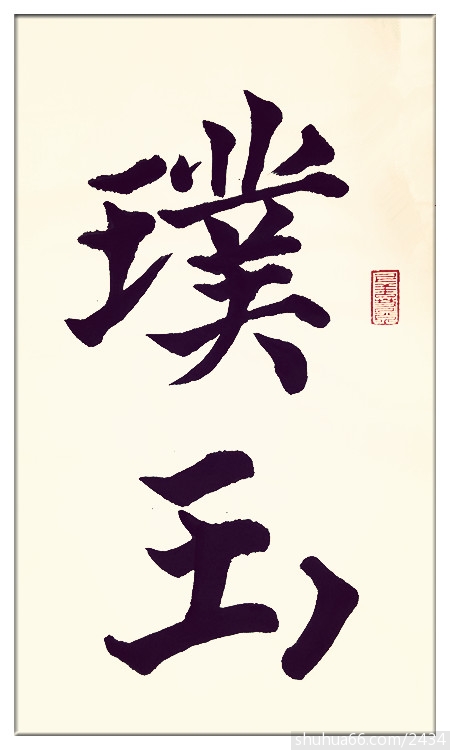 璞
玉
shuhua66.com/2434